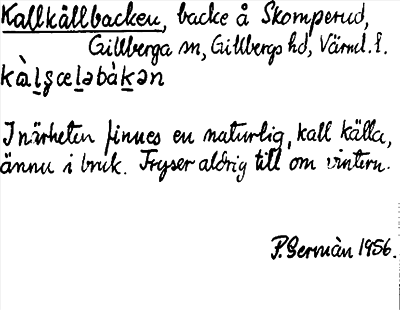 Kallkällbacken, backe å Skomperud,
Gillberga sn, Gillbergs hd, Värml. l.
kàl̠ʂœl̠əbàk̠ən
I närheten finnes en naturlig, kall källa,
ännu i bruk. Fryser aldrig till om vintern.
P. Germàn 1956.